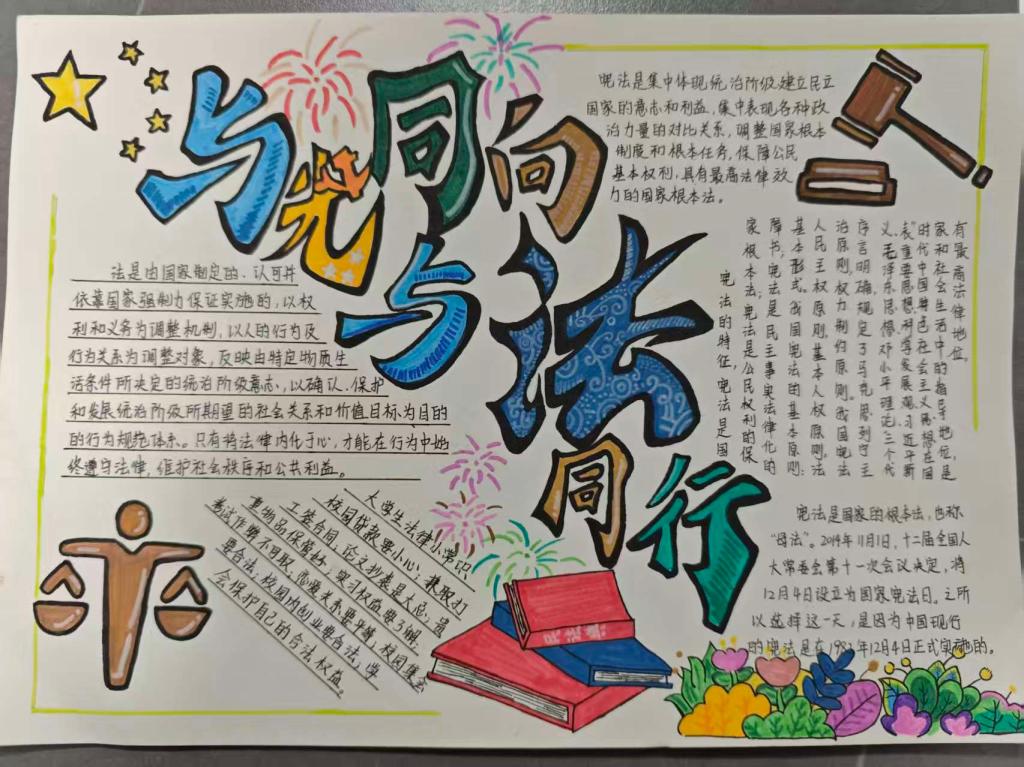 与党同向
与法同行
法是由国家制定的、认可并
依靠国家强制力保证实施的,以权
利和义务为调整机制,以人的行为及
行为关系为调整对象,反映由特定物质生
活条件所决定的统治阶级意志,以确认、保护
和发展统治阶级所期望的社会关系和价值目标为目的
的行为规范体系。只有将法律内化于心,才能在行为中始
终遵守法律,维护社会秩序和公共利益。
宪法是集中体现统治阶级建立民主
国家的意志和利益,集中表现各种政
治力量的对比关系,调整国家根本
制度和根本任务,保障公民
基本权利,具有最高法律效
力的国家根本法。
宪法的特征,宪法是国
家根本法;宪法是公民权利的保
障书;宪法是民主事实法律化的
基本形式。我国宪法的基本原则:
人民主权原则,基本人权原则,法
治原则,权力制约原则。我国宪法
序言明确规定了马克思列宁主
义、毛泽东思想、邓小平理论、三个代
表"重要思想、科学发展观、习近平新
时代中国特色社会主义思想在国
家和社会生活中的指导地位,是
有最高法律地位。
大学生法律小常识
校园贷款要小心;兼职打
工签合同,论文抄袭是大忌;贵
重物品保管好,实习权益要了解;
考试作弊不可取,恋爱关系要平等;校园集会
要合法;校园内创业要合法,学
会保护自己的合法权益。
民法典
宪法是国家的根本法,也称
“母法”。2014年11月1日,十二届全国人
大常委会第十一次会议决定,将
12月4日设立为国家宪法日。之所
以选择这一天,是因为中国现行
的宪法是在1982年12月4日正式实施的。